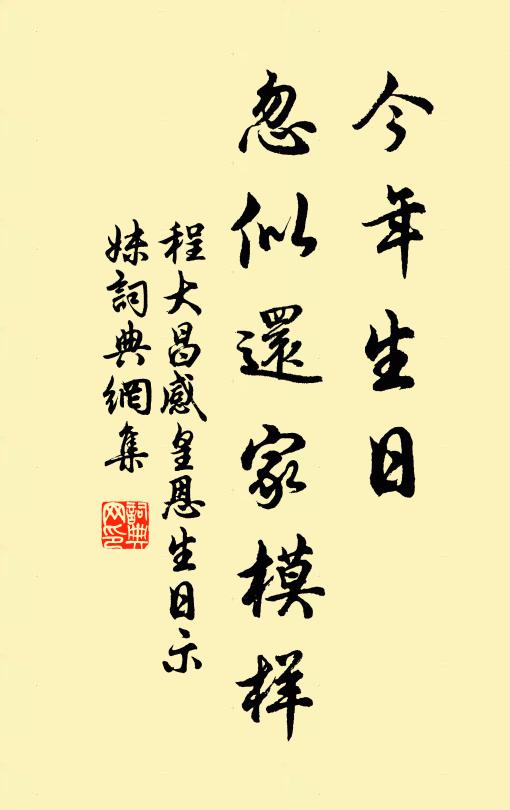 今年生日
忽似還家模样
程大昌感皇恩生日示
妹詞典網集
詞典网印